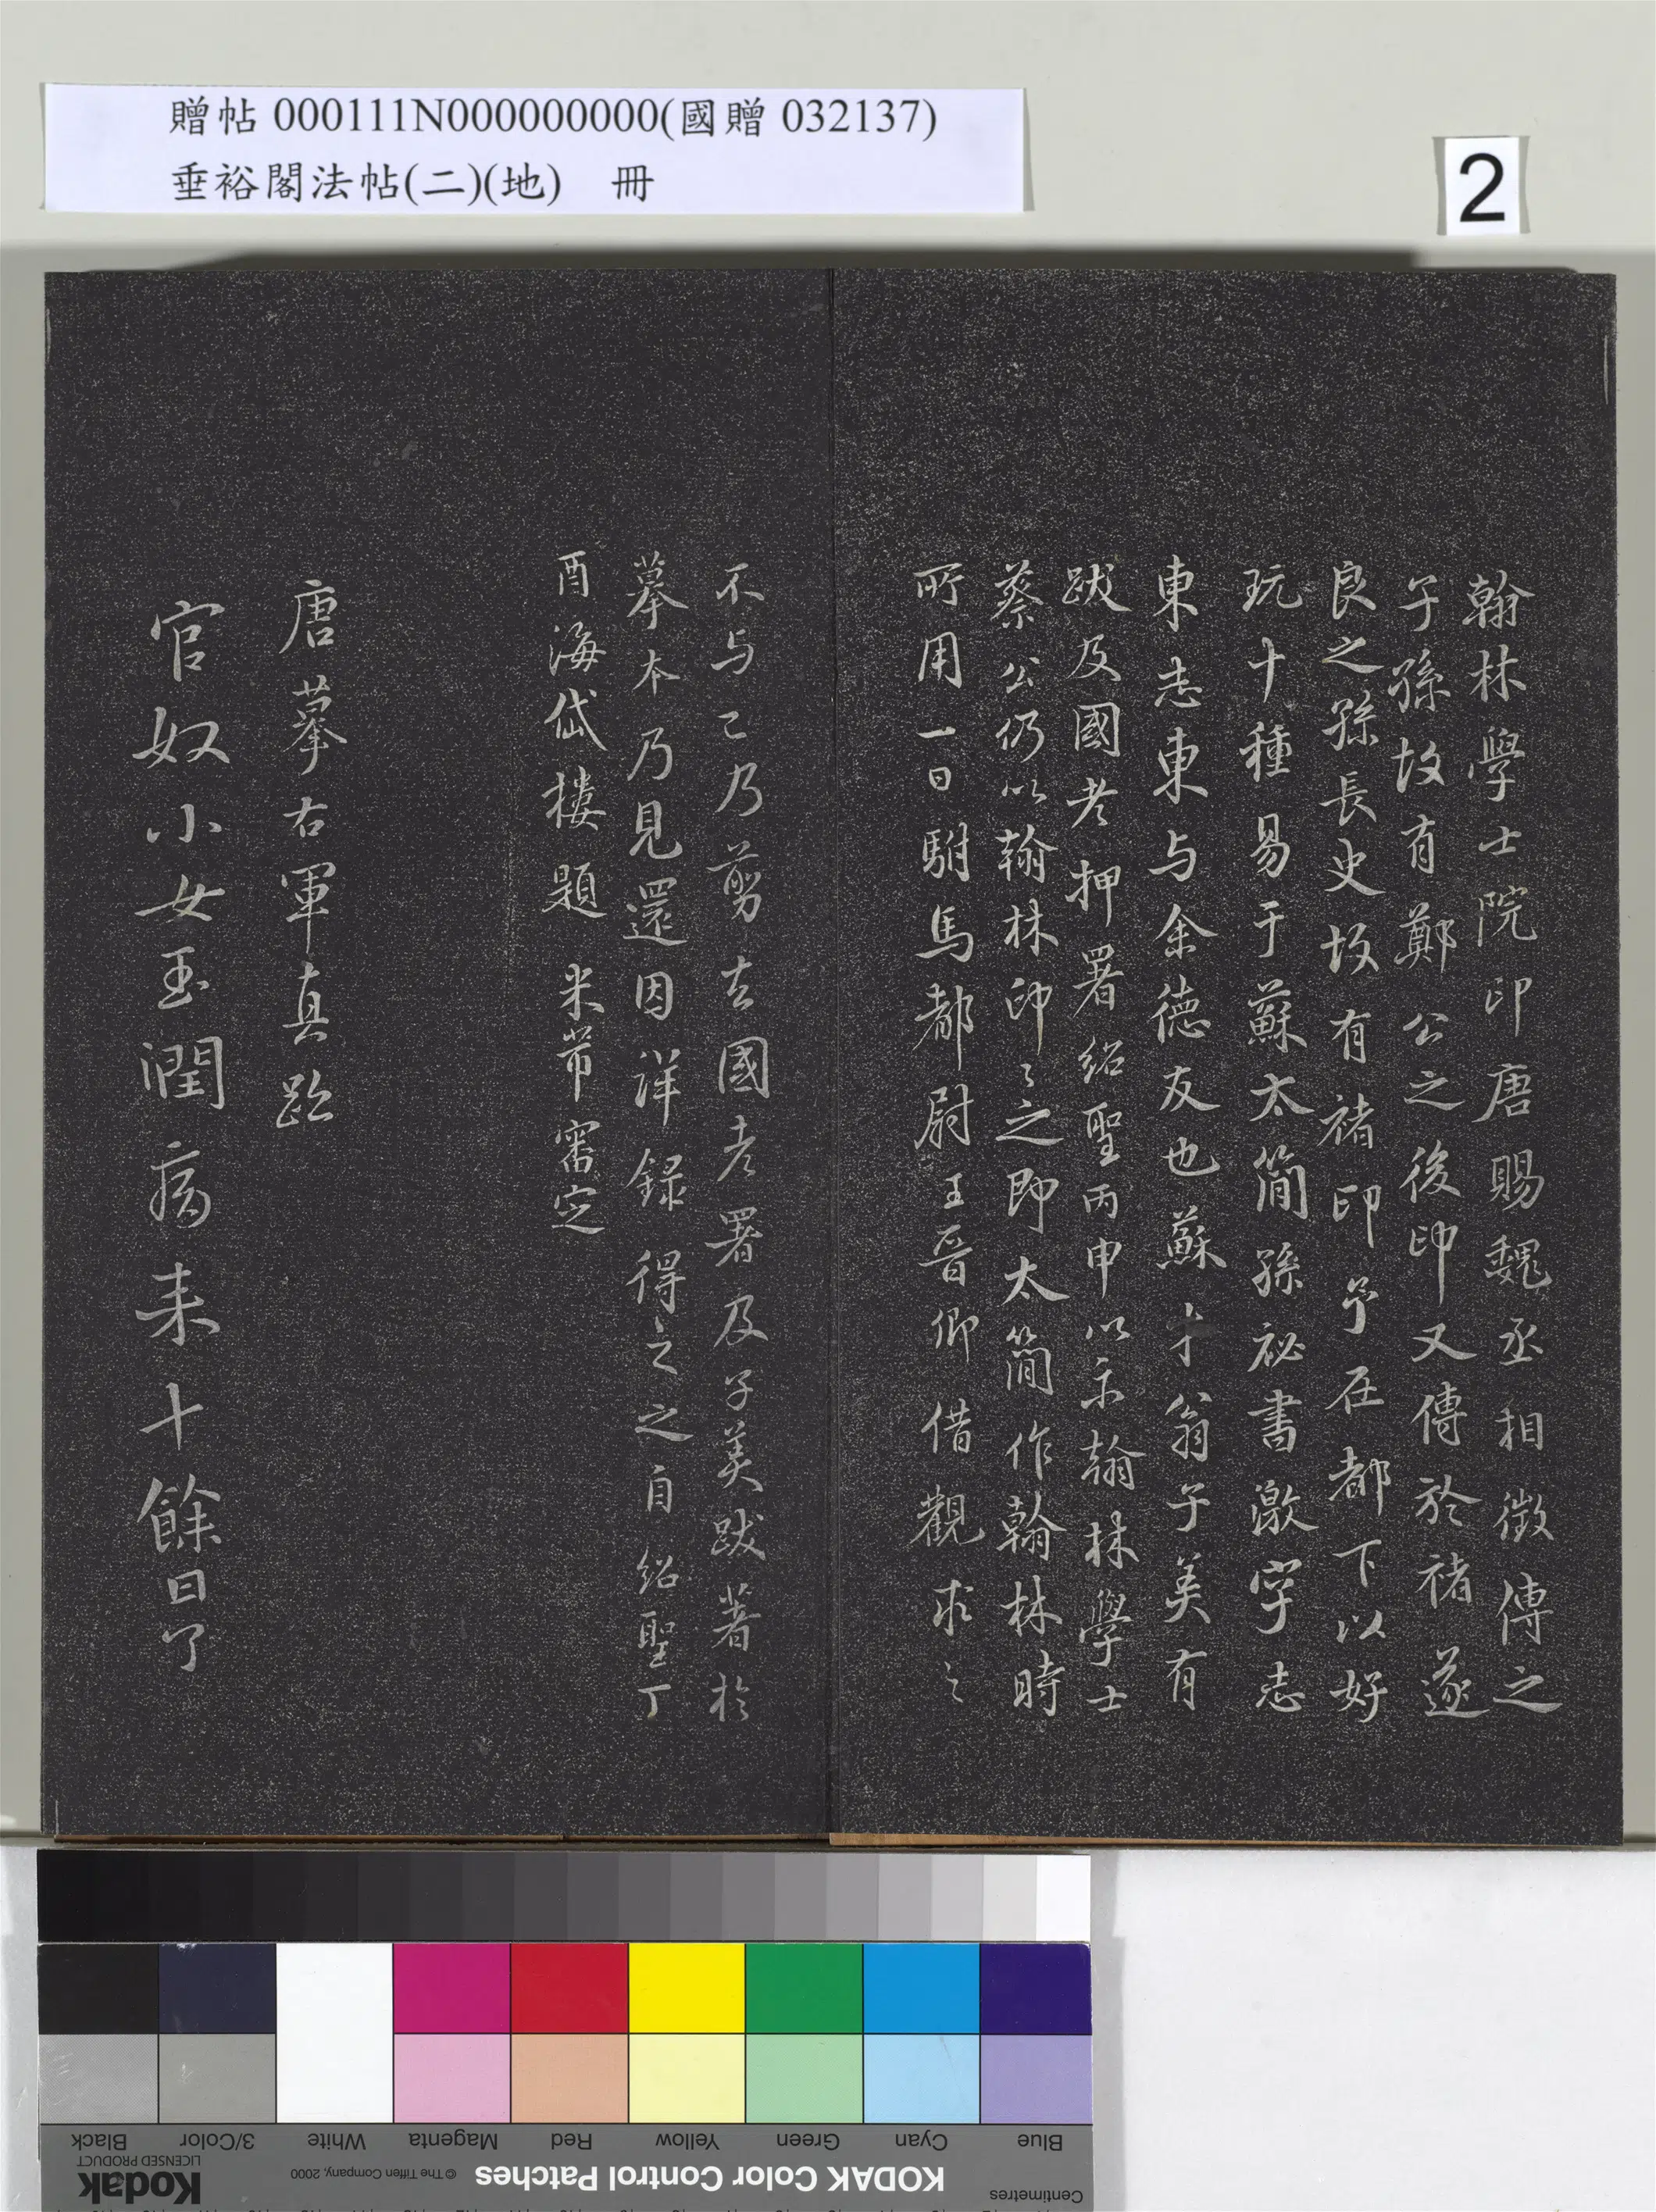 贈帖 000111N000000000(國贈 032137)
垂裕閣法帖(二)(地) 冊
2
翰林學士院印唐賜魏丞相徵傳之
子孫故有鄭公之後印又傳於褚遂
良之孫長史故有褚印予在都下以好
玩十種易于蘇太簡孫祕書激字志
東志東与余德友也蘇才翁子美有
跋及國老押署紹聖丙申以示翰林學士
蔡公仍以翰林印印之即太簡作翰林時
所用一日駙馬都尉王晉卿借觀求之
不与已乃剪去國老署及子美跋著於
摹本乃見還因詳錄得之之自紹聖丁
酉海岱樓題 米芾審定
唐摹右軍真跡
官奴小女玉潤病来十餘日了
Blue
Cyan
Green
Yellow
Red
Magenta
White
3/Color
Black
Centimetres
KODAK Color Control Patches
© The Tiffen Company, 2000
Kodak
LICENSED PRODUCT